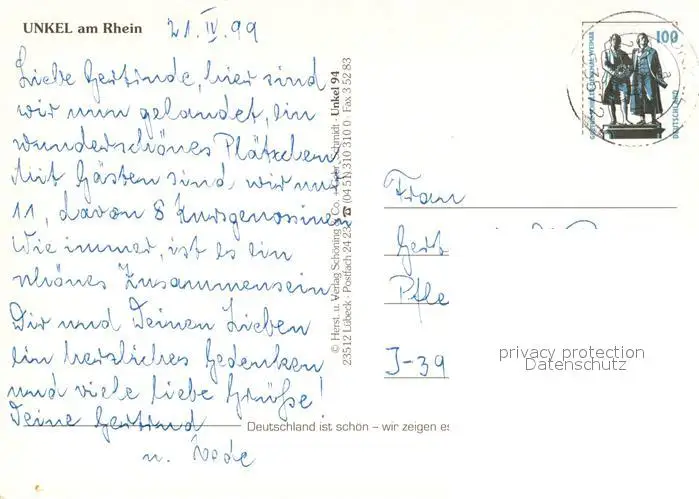 UNKEL am Rhein
21.IV.99
Liebe Gertinde, hier sind
wir nun gelandet, ein
wunderschönes Plätzchen
Mit Gästen sind wir nur
11, davon 8 Kursgenossinen
Wie immer, ist es ein
schönes Zusammensein
Dir und Deinen Lieben
ein herzliches Gedenken
und viele liebe Grüße!
Deine Gertrud
u.
© Herst. u. Verlag Schöning & Co. · Schmidt · Unkel 94
23512 Lübeck · Postfach 24 23 ☎ (04 51) 310 310 0 · Fax 3 52 83
Deutschland ist schön – wir zeigen es
100
DEUTSCHLAND
Frau
Gert
J-39
privacy protection
Datenschutz